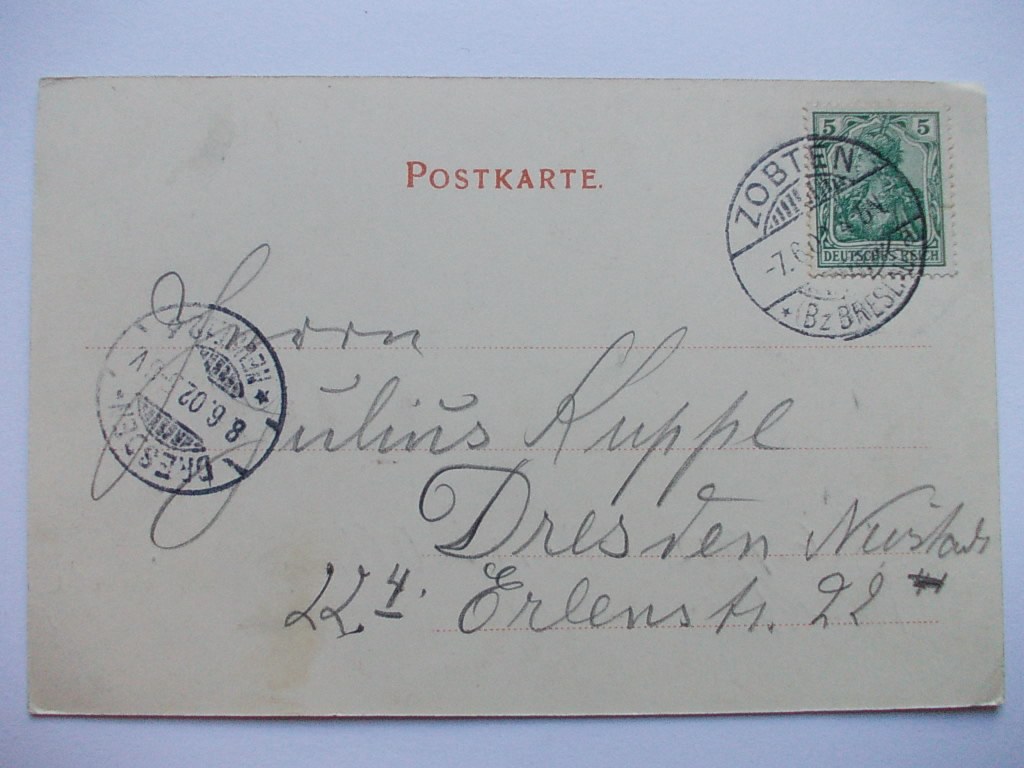 POSTKARTE.
5 5
DEUTSCHES REICH
ZOBTEN
-7.6.
*(Bz BRESLAU)
Herrn
DRESDEN
8.6.02
V
Julius Ruppl
Dresden Neustadt
22 4. Erlenstr. 22